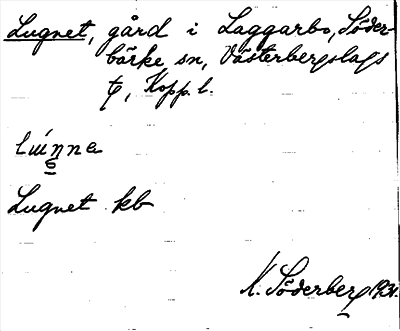 Lugnet, gård i Laggarbo, Söder-
bärke sn, Västerbergslags
tg, Kopp. l.
Lugnet kb
K. Söderberg 1931.